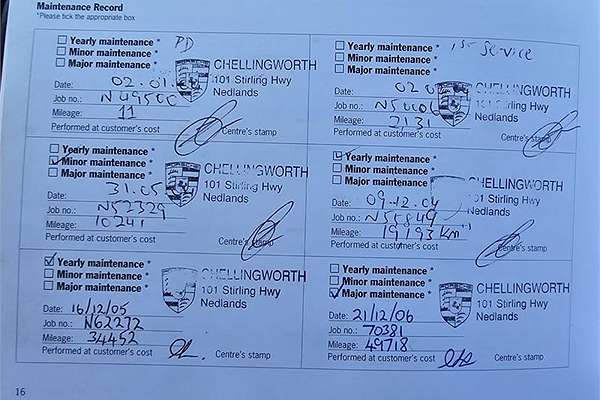 Maintenance Record
*Please tick the appropriate box
Yearly maintenance * PD
Minor maintenance *
Major maintenance *
Date: 02.01.
Job no.: N49500
Mileage: 11
Performed at customer's cost
CHELLINGWORTH
101 Stirling Hwy
Nedlands
Centre's stamp
Yearly maintenance * 1st Service
Minor maintenance *
Major maintenance *
Date: 02.0
Job no.:
Mileage: 2131
Performed at customer's cost
CHELLINGWORTH
101 Stirling Hwy
Nedlands
Centre's stamp
Yearly maintenance *
Minor maintenance *
Major maintenance *
Date: 31.05
Job no.: N52329
Mileage: 10241
Performed at customer's cost
CHELLINGWORTH
101 Stirling Hwy
Nedlands
Centre's stamp
Yearly maintenance *
Minor maintenance *
Major maintenance *
Date: 09.12.04
Job no.:
Mileage: 19793 km
Performed at customer's cost
CHELLINGWORTH
101 Stirling Hwy
Nedlands
Centre's stamp
Yearly maintenance *
Minor maintenance *
Major maintenance *
Date: 16/12/05
Job no.: N62272
Mileage: 34452
Performed at customer's cost
CHELLINGWORTH
101 Stirling Hwy
Nedlands
Centre's stamp
Yearly maintenance *
Minor maintenance *
Major maintenance *
Date: 21/12/06
Job no.: 70381
Mileage: 49718
Performed at customer's cost
CHELLINGWORTH
101 Stirling Hwy
Nedlands
Centre's stamp
16